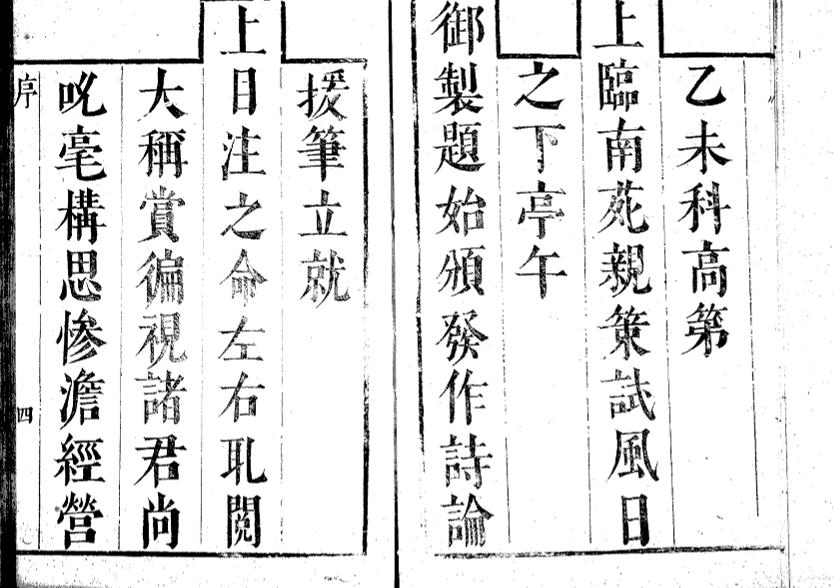 乙未科高第
上臨南苑親策試風日
之下亭午
御製題始頒發作詩論
援筆立就
上目注之命左右取閱
大稱賞徧視諸君尚
吮毫構思慘澹經營
序
四